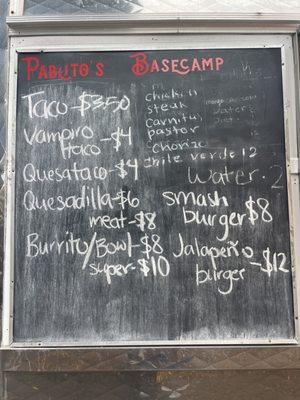 Pablito's Basecamp
Taco-$3.50
Vampiro
taco-$4
Quesataco-$4
Quesadilla-$6
meat-$8
Burrito/Bowl-$8
super-$10
chicken
steak
carnitas
pastor
chorizo
chile verde 12
water-2
smash
burger $8
Jalapeño
burger-$12